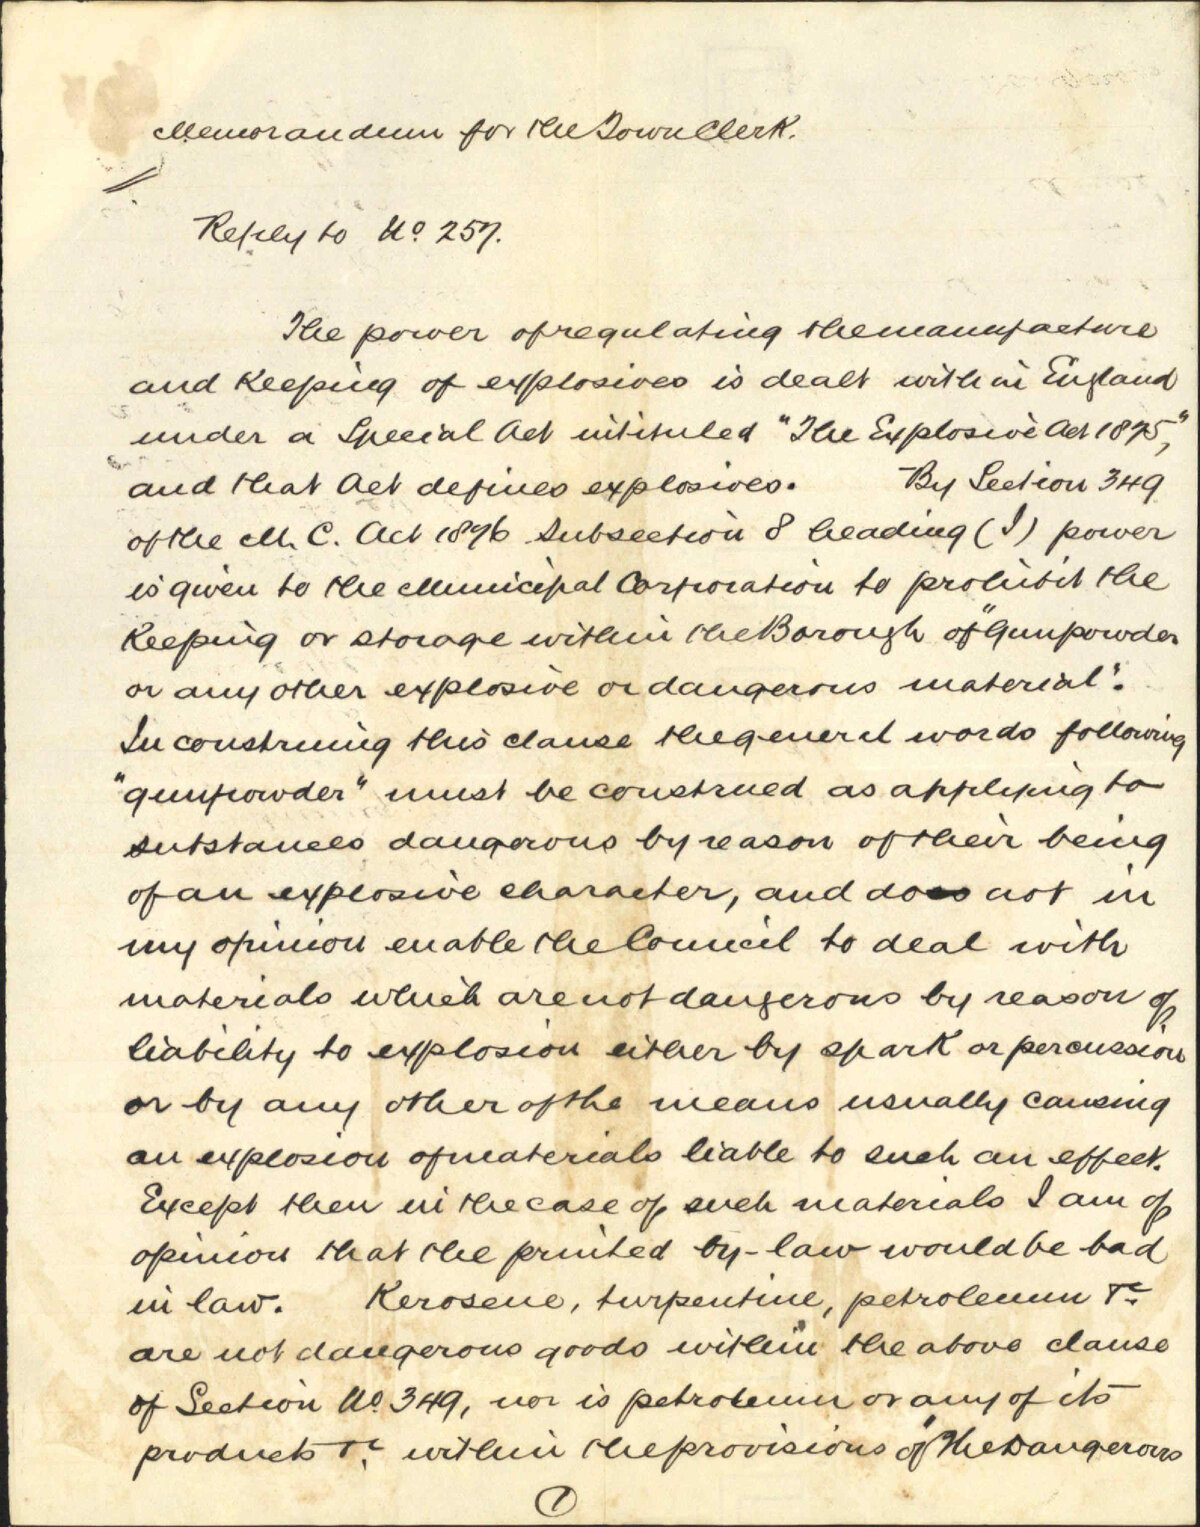 Memorandum for the Town Clerk.
Reply to No. 257.
The power of regulating the manufacture
and Keeping of explosives is dealt with in England
under a Special Act intituled "The Explosive Act 1875,"
and that Act defines explosives. By Section 349
of the M. C. Act 1876 Subsection 8 heading (I) power
is given to the Municipal Corporation to prohibit the
Keeping or storage within the Borough of "Gunpowder
or any other explosive or dangerous material".
In construing this clause the general words following
"gunpowder" must be construed as applying to
substances dangerous by reason of their being
of an explosive character, and does not in
my opinion enable the Council to deal with
materials which are not dangerous by reason of
liability to explosion either by spark or percussion
or by any other of the means usually causing
an explosion of materials liable to such an effect.
Except then in the case of such materials I am of
opinion that the printed by-law would be bad
in law. Kerosene, turpentine, petroleum &c
are not dangerous goods within the above clause
of Section No. 349, nor is petroleum or any of its
products &c. within the provisions of "The Dangerous
1